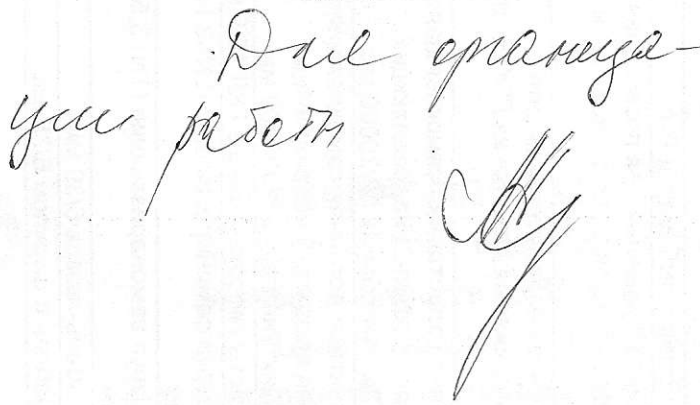 Для организа-
ции работы